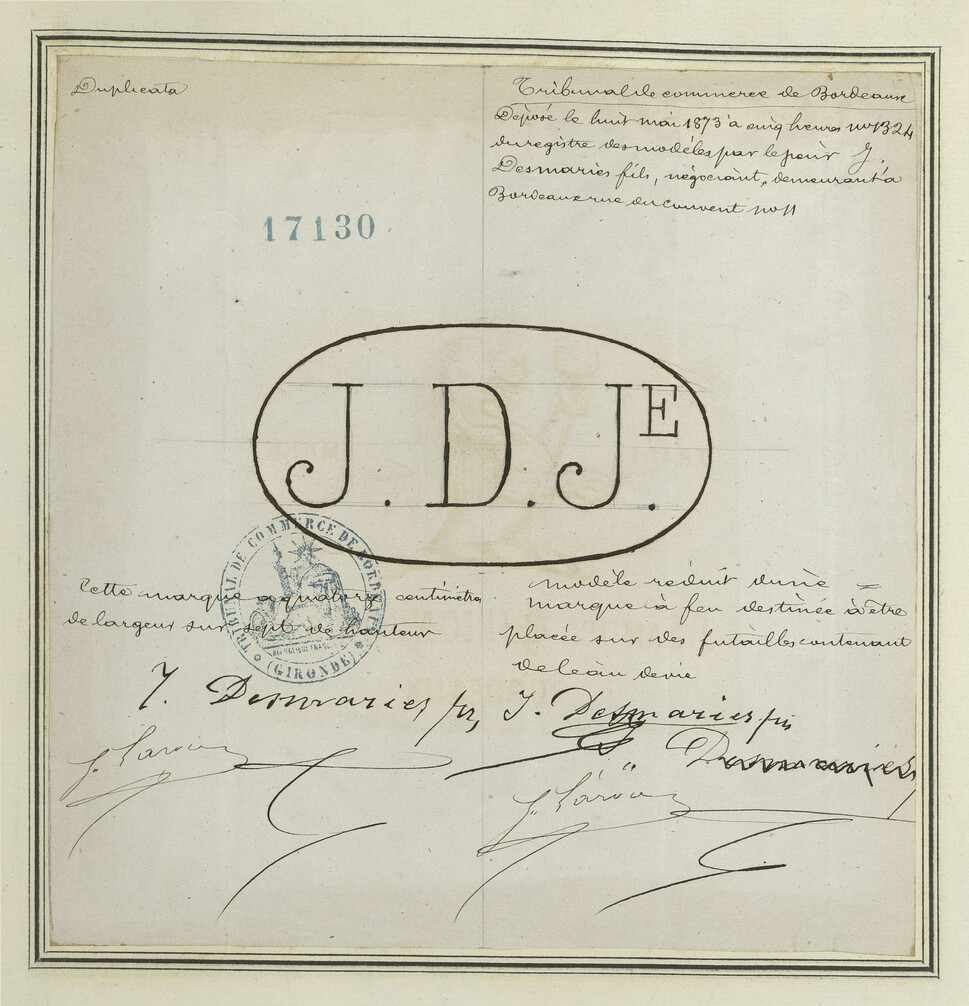 Duplicata
Tribunal de commerce de Bordeaux
Déposé le huit mai 1873 à cinq heures no 1324
du registre des modèles par le J.
Desmaries fils, négociant, demeurant à
Bordeaux rue du couvent no 11
17130
J. D. JE.
TRIBUNAL DE COMMERCE DE BORDEAUX
(GIRONDE)
Cette marque a quatorze centimètres
de largeur sur sept de hauteur
modèle réduit d'une =
marque à feu destinée à être
placée sur des futailles contenant
de leau de vie
J. Desmaries
J. Desmaries
Desmaries